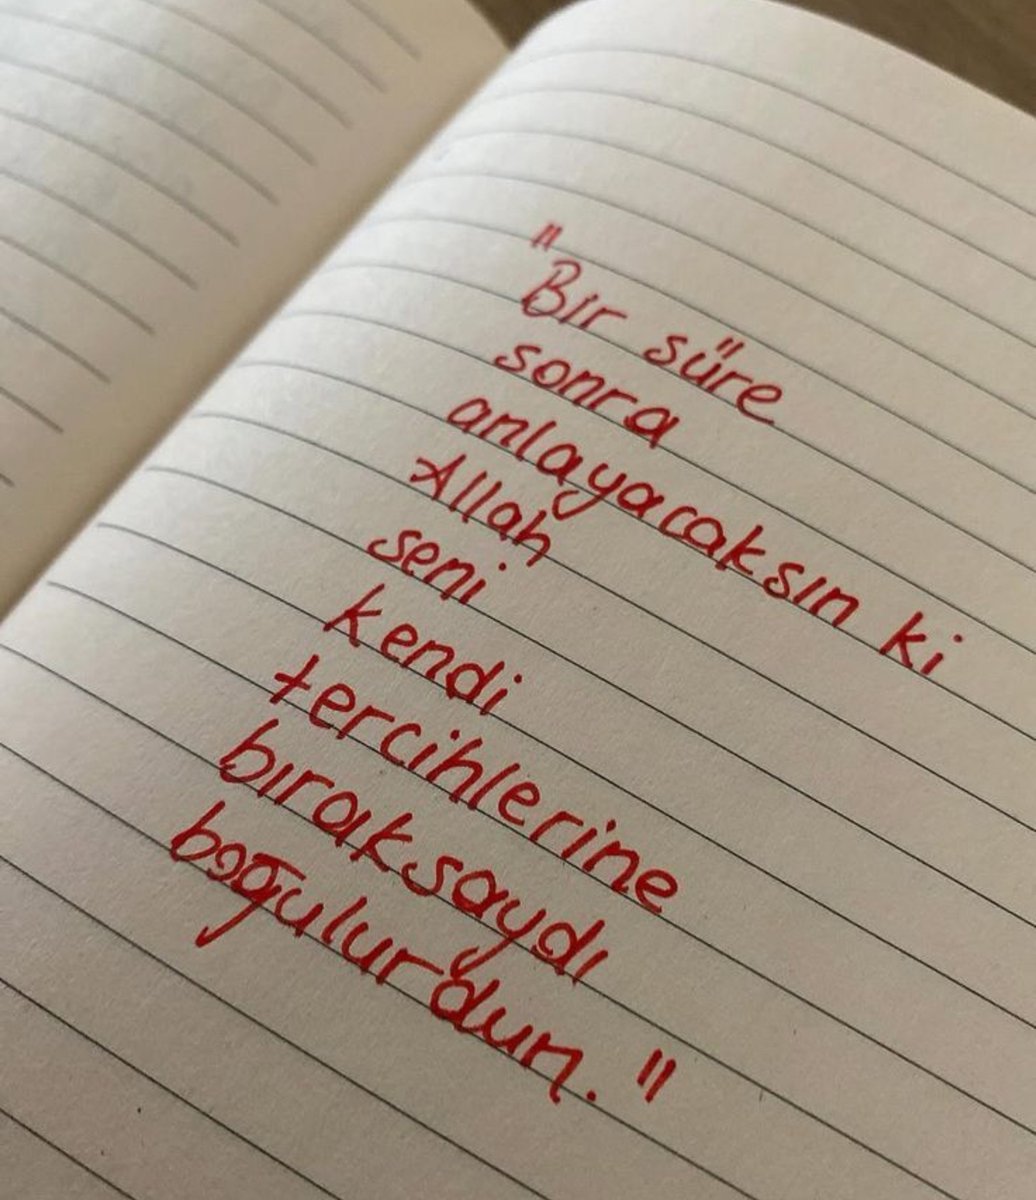 "Bir süre
sonra
anlayacaksın ki
Allah
seni
kendi
tercihlerine
bıraksaydı
boğulurdun."